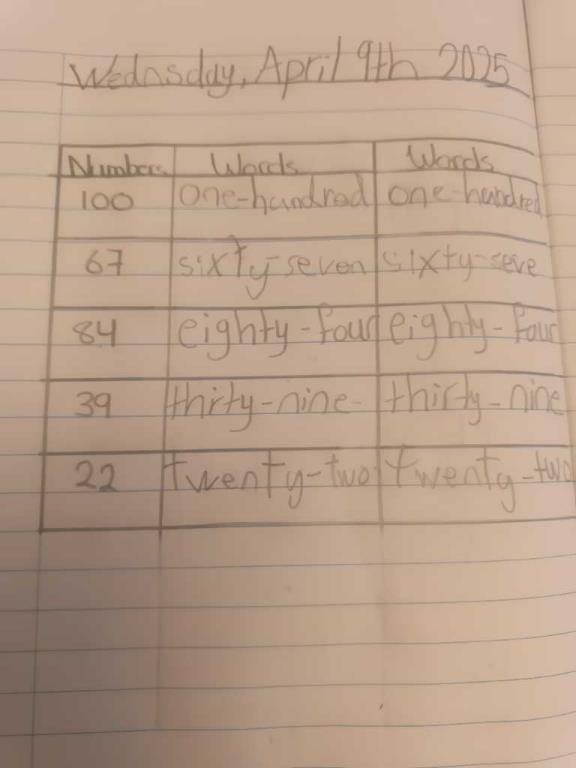 Wednsday, April 9th 2025
Numbers Words Words
100 one-hundred one-hundred
67 sixty-seven sixty-seve
84 eighty-four eighty-four
39 thirty-nine- thirty-nine
22 twenty-two twenty-two